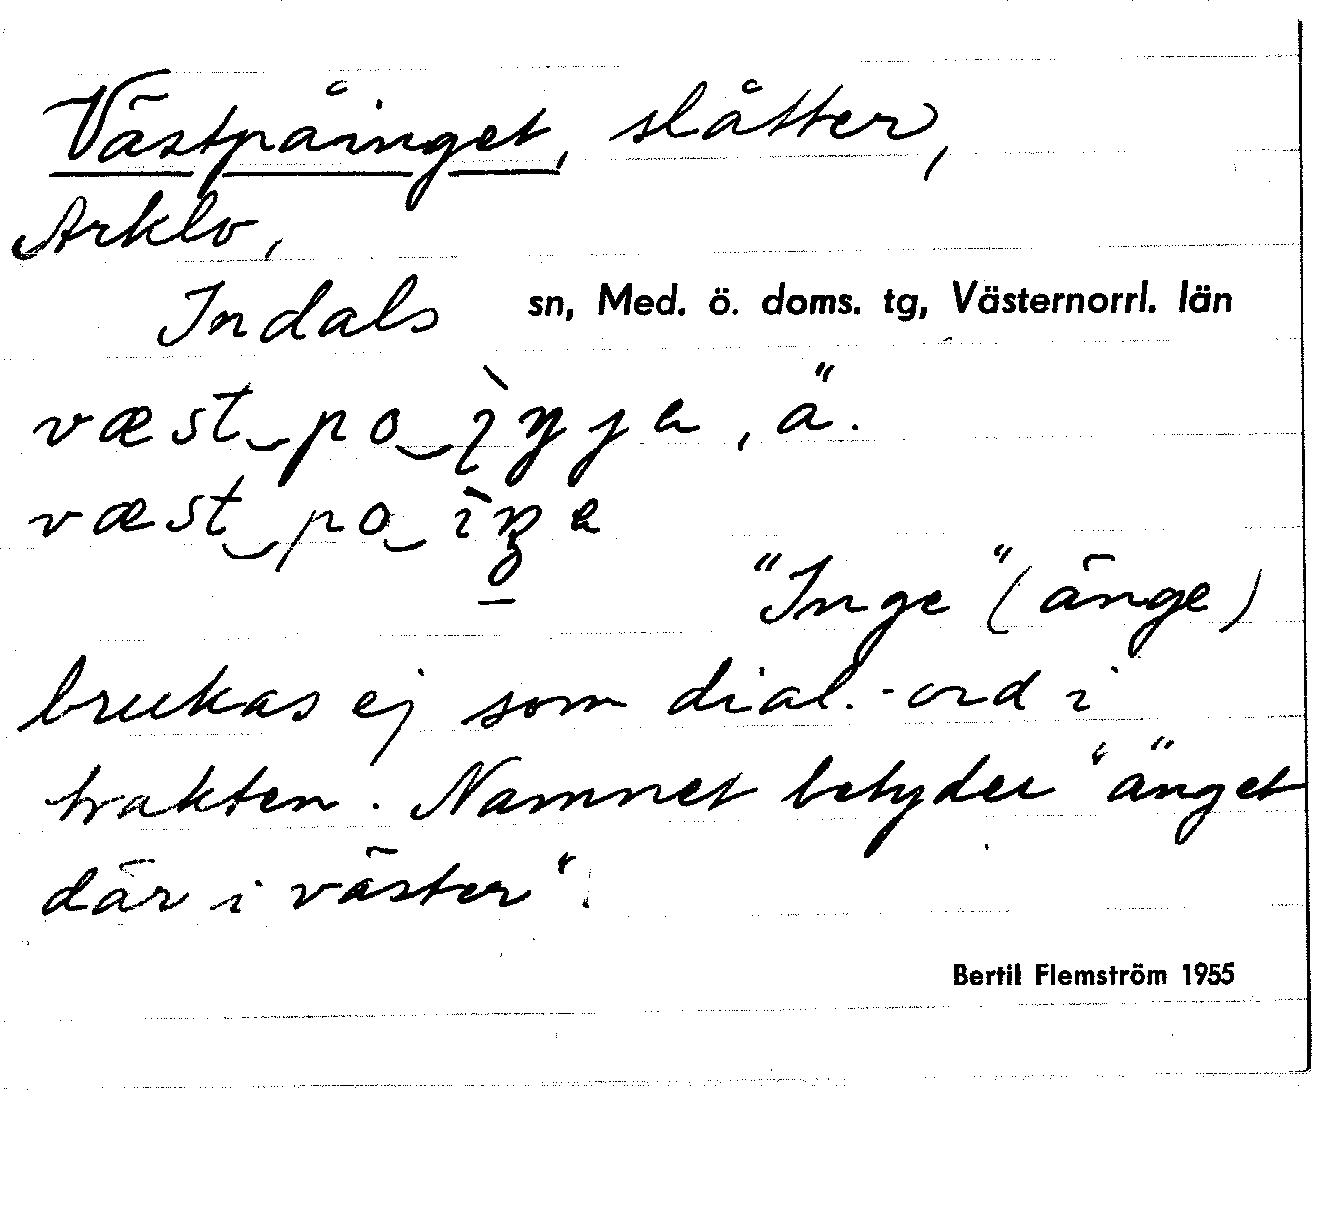 Västpåinget, slåtter,
Arklo,
Indals sn, Med. ö. doms. tg, Västernorrl. län
væst‿po‿ìŋɟe, ä.
væst‿po‿ìŋe
"Inge" (änge)
brukas ej som dial.-ord i
trakten. Namnet betyder "änget
där i väster".
Bertil Flemström 1955